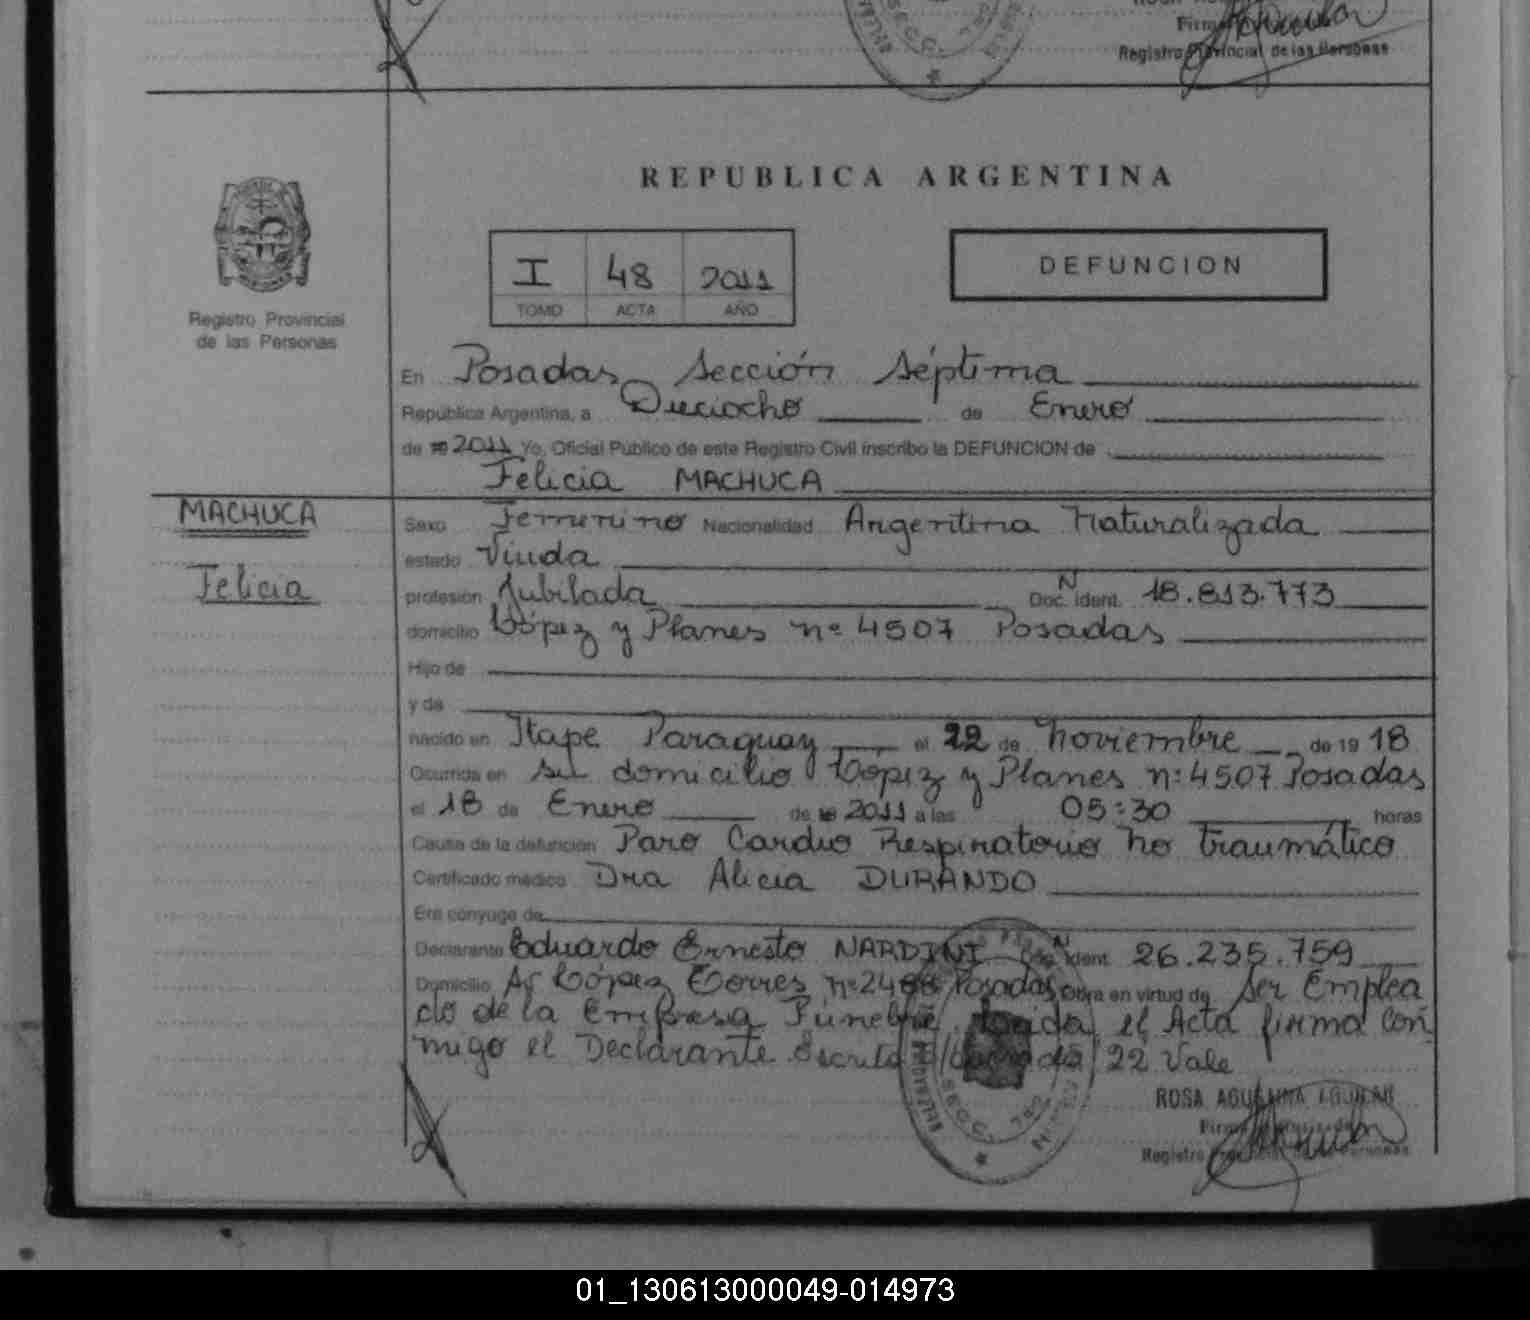 Registro Provincial de las Personas
REPUBLICA ARGENTINA
I 48 2011
TOMO ACTA AÑO
DEFUNCION
Registro Provincial
de las Personas
En Posadas, Sección Séptima
República Argentina, a Dieciocho de Enero
de 19 2011 Yo, Oficial Público de este Registro Civil inscribo la DEFUNCION de
Felicia MACHUCA
MACHUCA
Felicia
Sexo Femenino Nacionalidad Argentina Naturalizada
estado Viuda
profesión Jubilada Doc. Ident. N 18.813.773
domicilio López y Planes nº 4507 Posadas
Hijo de
y de
nacido en Itape Paraguay el 22 de Noviembre de 19 18
Ocurrida en su domicilio López y Planes nº 4507 Posadas
el 18 de Enero de 19 2011 a las 05:30 horas
Causa de la defunción Paro Cardio Respiratorio no traumático
Certificado médico Dra Alicia DURANDO
Era cónyuge de
Declarante Eduardo Ernesto NARDINI Doc. Ident. N 26.235.759
Domicilio Av López Torres nº Posadas Obra en virtud de Ser Emplea
do de la Empresa Fúnebre. Leida el Acta firma con
migo el Declarante. 22 Vale
ROSA AGUILAR
Registro Provincial de las Personas
01_130613000049-014973